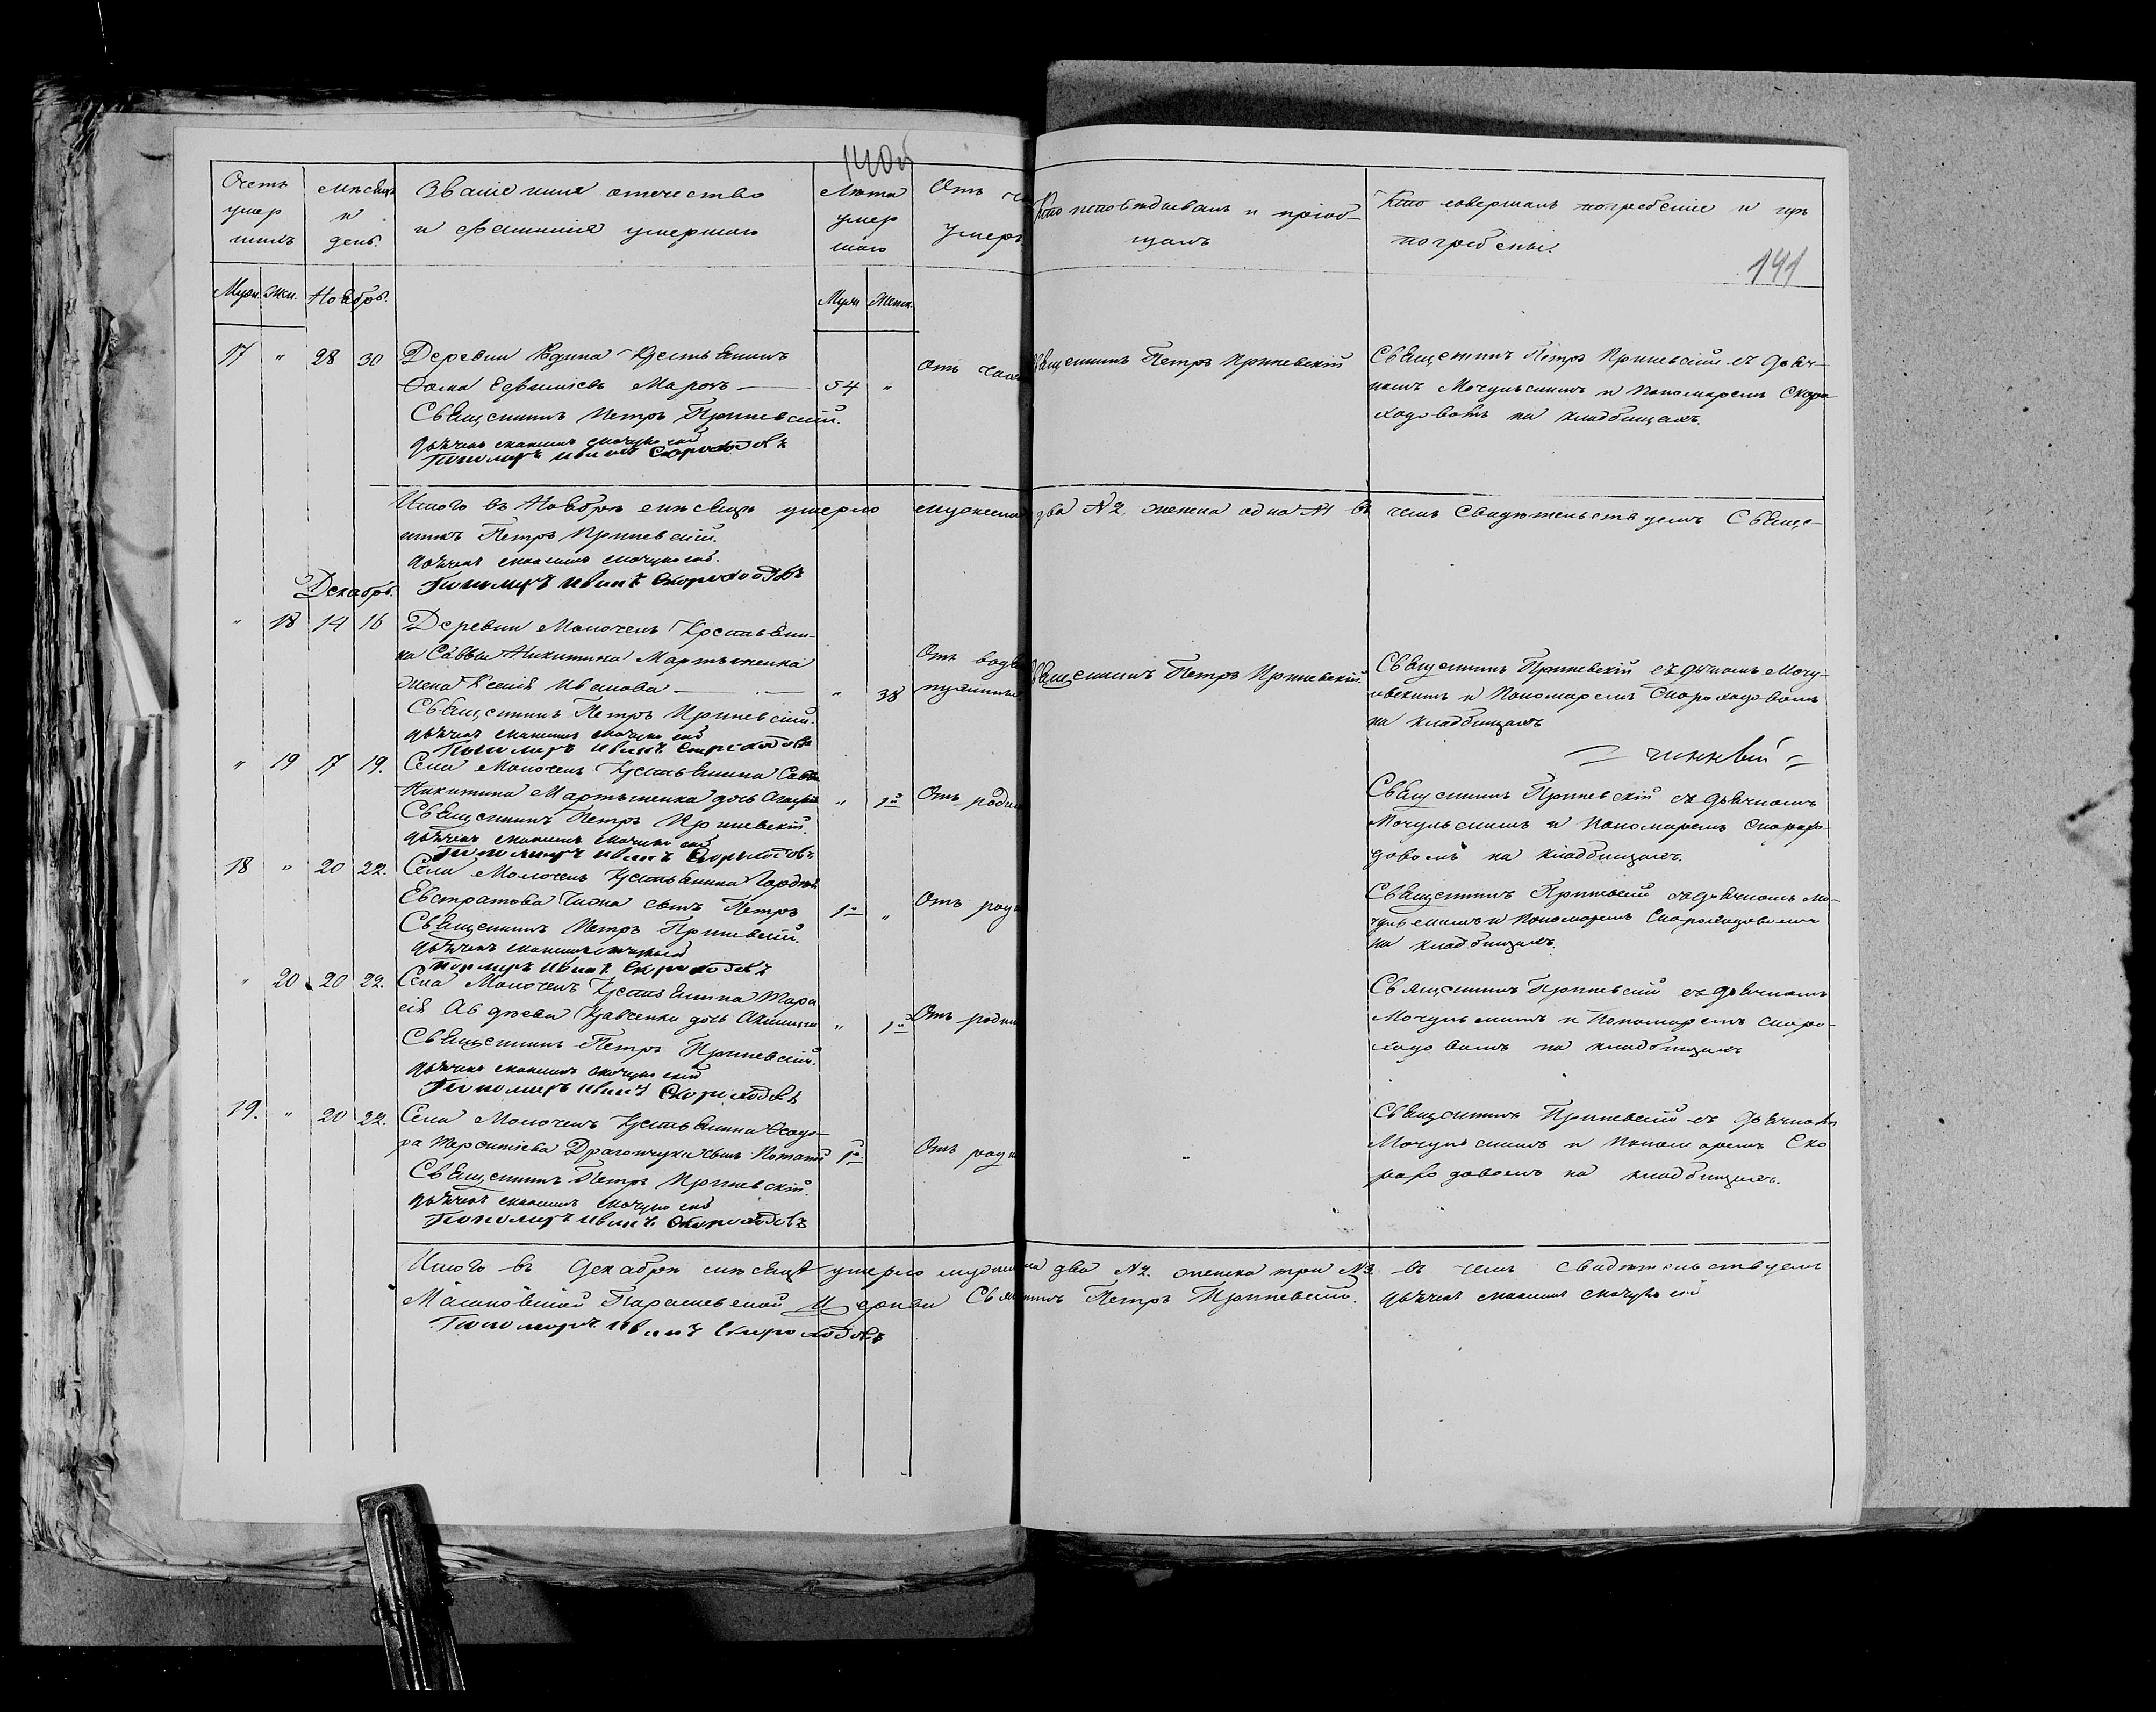 140об
Счетъ умер шихъ
мѣсяцъ и день.
Званіе имя отечество
и фамилія умершаго
Лѣта умер шаго
Отъ че
умеръ
Кто исповѣдывалъ и пріоб-
щалъ
Кто совершалъ погребеніе и гдѣ
погребены.
141
Муж. Жен. Ноябрь.
Муж Женс.
17 " 28 30 Деревни Крестьянинъ
Фома Евфиміевъ Марочъ — 54 "
Отъ
Священникъ Петръ Приневскій.
Дьячекъ Максимъ Мочульскій
Пономарь Иванъ Скороходовъ
Священникъ Петръ Приневскій
Священникъ Петръ Приневскій съ дьяч-
комъ Мочульскимъ и Пономаремъ Скоро-
ходовымъ на кладбищахъ.
Итого въ Ноябрѣ мѣсяцѣ умерло мужеска два №2, женска одна №1 въ чемъ Свидѣтельствуемъ Свяще-
нникъ Петръ Приневскій.
Дьячекъ Максимъ Мочульскій.
Пономарь Иванъ Скороходовъ
Декабрь.
" 18 14 16 Деревни Молочекъ Крестьяни-
на Саввы Никитина Мартыненка
жена Ксенія Иванова — " 38
Отъ водян
Священникъ Петръ Приневскій.
Дьячекъ Максимъ Мочульскій
Пономарь Иванъ Скороходовъ
Священникъ Петръ Приневскій.
Священникъ Приневскій съ дьячкомъ Мочу-
льскимъ и Пономаремъ Скороходовымъ
на кладбищахъ
" 19 17 19. Села Молочекъ Крестьянина Саввы
Никитина Мартыненка дочь " 1й
Отъ роди
Священникъ Петръ Приневскій.
Дьячекъ Максимъ Мочульскій
Пономарь Иванъ Скороходовъ
Священникъ Приневскій съ дьячкомъ
Мочульскимъ и Пономаремъ Скорохо-
довымъ на кладбищахъ.
18 " 20 22. Села Молочекъ Крестьянина Гордѣя
Евстратова сынъ Петръ 1й "
Отъ роди
Священникъ Петръ Приневскій.
Дьячекъ Максимъ Мочульскій
Пономарь Иванъ Скороходовъ
Священникъ Приневскій съ дьячкомъ Мо-
чульскимъ и Пономаремъ Скороходовымъ
на кладбищахъ.
" 20 20 22. Села Молочекъ Крестьянина Тара
сія Авдѣева Кравченки дочь Акилина " 1й
Отъ роди
Священникъ Петръ Приневскій.
Дьячекъ Максимъ Мочульскій
Пономарь Иванъ Скороходовъ
Священникъ Приневскій съ дьячкомъ
Мочульскимъ и Пономаремъ Скоро-
ходовымъ на кладбищахъ
19. " 20 22. Села Молочекъ Крестьянина Феодо-
ра Терентіева Драгончука сынъ Потапій 1й
Отъ роди
Священникъ Петръ Приневскій.
Дьячекъ Максимъ Мочульскій
Пономарь Иванъ Скороходовъ
Священникъ Приневскій съ дьячкомъ
Мочульскимъ и Пономаремъ Ско
роходовымъ на кладбищахъ.
Итого въ Декабрѣ мѣсяцѣ умерло мужеска два №2. женска три №3. въ чемъ свидѣтельствуемъ
Параскевской Церкви Священникъ Петръ Приневскій. Дьячекъ Максимъ Мочульскій
Пономарь Иванъ Скороходовъ